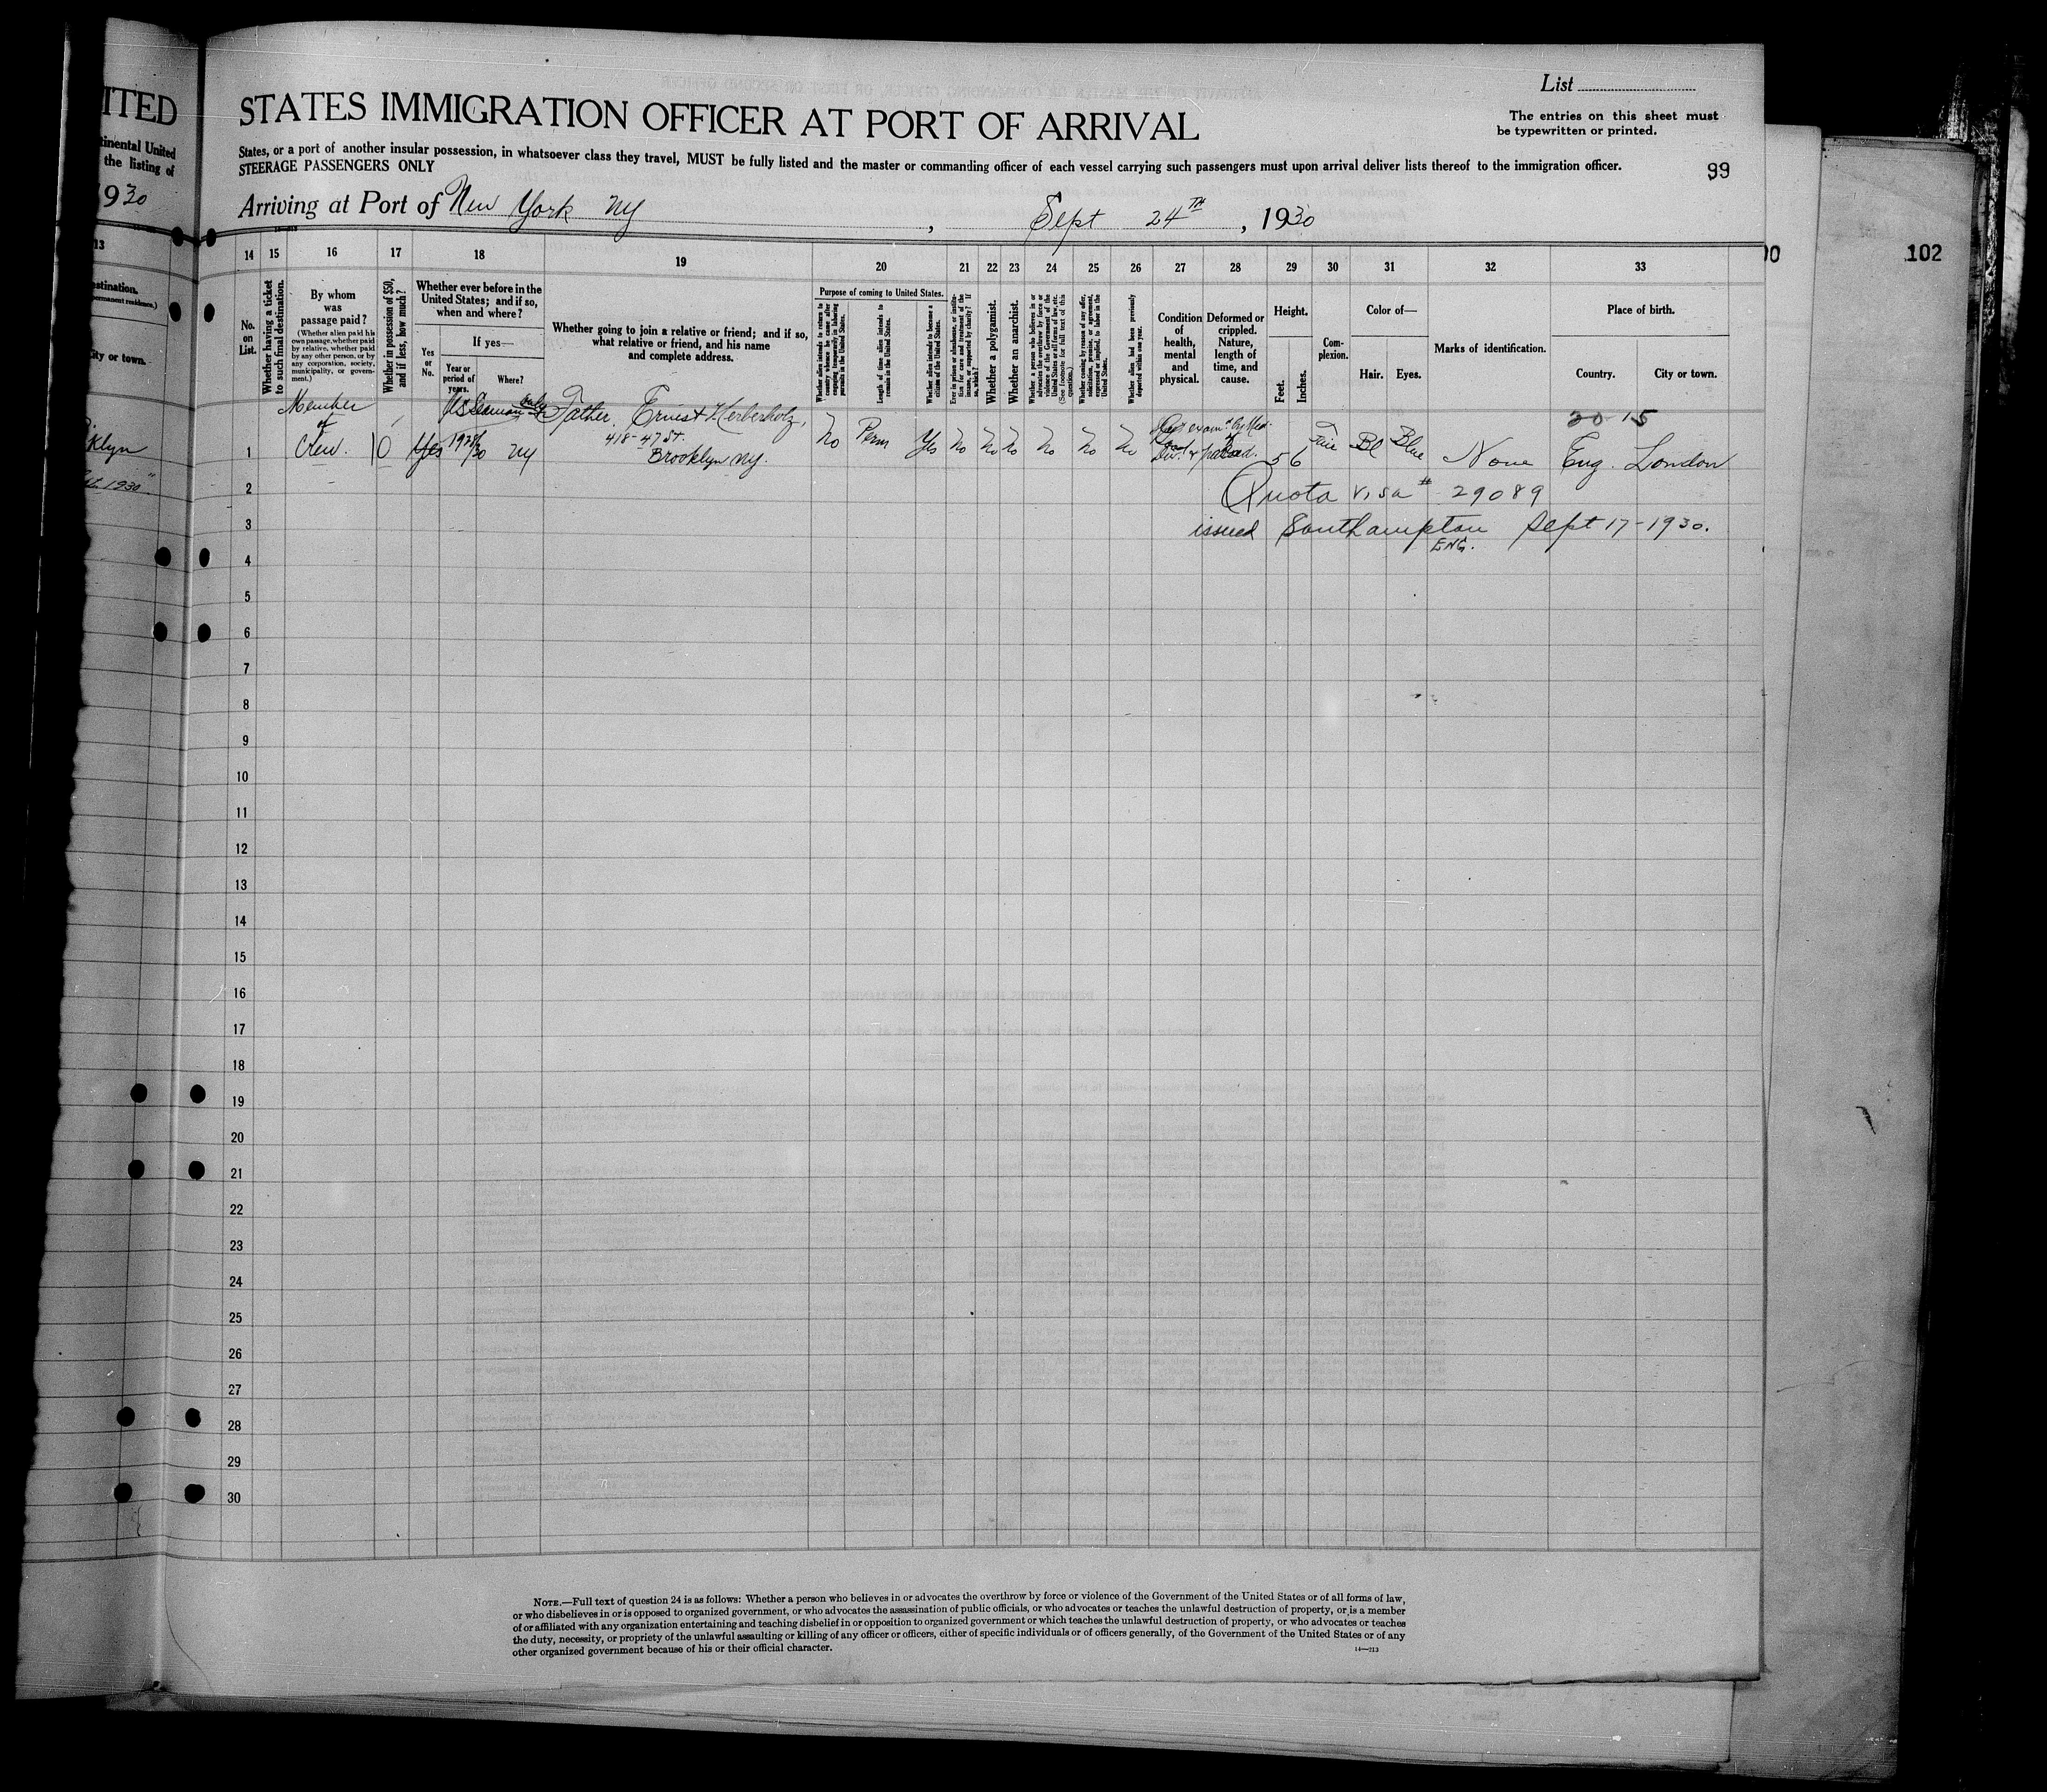 ITED
STATES IMMIGRATION OFFICER AT PORT OF ARRIVAL
List
The entries on this sheet must
be typewritten or printed.
tinental United
the listing of
States, or a port of another insular possession, in whatsoever class they travel, MUST be fully listed and the master or commanding officer of each vessel carrying such passengers must upon arrival deliver lists thereof to the immigration officer.
STEERAGE PASSENGERS ONLY
99
1930
Arriving at Port of New York NY, Sept 24TH, 1930
102
13
14 15 16 17 18 19 20 21 22 23 24 25 26 27 28 29 30 31 32 33
No. on List.
Whether having a ticket to such final destination.
By whom was passage paid?
(Whether alien paid his own passage, whether paid by relative, whether paid by any other person, or by any corporation, society, municipality, or government.)
Whether in possession of $50, and if less, how much?
Whether ever before in the United States; and if so, when and where?
Yes or No.
If yes—
Year or period of years.
Where?
Whether going to join a relative or friend; and if so, what relative or friend, and his name and complete address.
Purpose of coming to United States.
Whether alien intends to return to country whence he came after engaging temporarily in laboring pursuits in the United States.
Length of time alien intends to remain in the United States.
Whether alien intends to become a citizen of the United States.
Ever in prison or almshouse, or institution for care and treatment of the insane, or supported by charity? If so, which?
Whether a polygamist.
Whether an anarchist.
Whether a person who believes in or advocates the overthrow by force or violence of the Government of the United States or all forms of law, etc. (See footnote for full text of this question.)
Whether coming by reason of any offer, solicitation, promise, or agreement, expressed or implied, to labor in the United States.
Whether alien had been previously deported within one year.
Condition of health, mental and physical.
Deformed or crippled. Nature, length of time, and cause.
Height.
Feet.
Inches.
Complexion.
Color of—
Hair.
Eyes.
Marks of identification.
Place of birth.
Country.
City or town.
estination.
City or town.
klyn
1930
20 15
Member of Crew.
Seaman only
1 10 Yes 1928/30 NY
Father. Ernest Herberholz,
418-47 St.
Brooklyn NY.
No Perm Yes No No No No No No
5 6 Fair Bl Blue None Eng. London
2 Quota visa # 29089
3 issued Southampton Sept 17-1930.
ENG.
4
5
6
7
8
9
10
11
12
13
14
15
16
17
18
19
20
21
22
23
24
25
26
27
28
29
30
NOTE.—Full text of question 24 is as follows: Whether a person who believes in or advocates the overthrow by force or violence of the Government of the United States or of all forms of law,
or who disbelieves in or is opposed to organized government, or who advocates the assassination of public officials, or who advocates or teaches the unlawful destruction of property, or is a member
of or affiliated with any organization entertaining and teaching disbelief in or opposition to organized government or which teaches the unlawful destruction of property, or who advocates or teaches
the duty, necessity, or propriety of the unlawful assaulting or killing of any officer or officers, either of specific individuals or of officers generally, of the Government of the United States or of any
other organized government because of his or their official character.
14—213